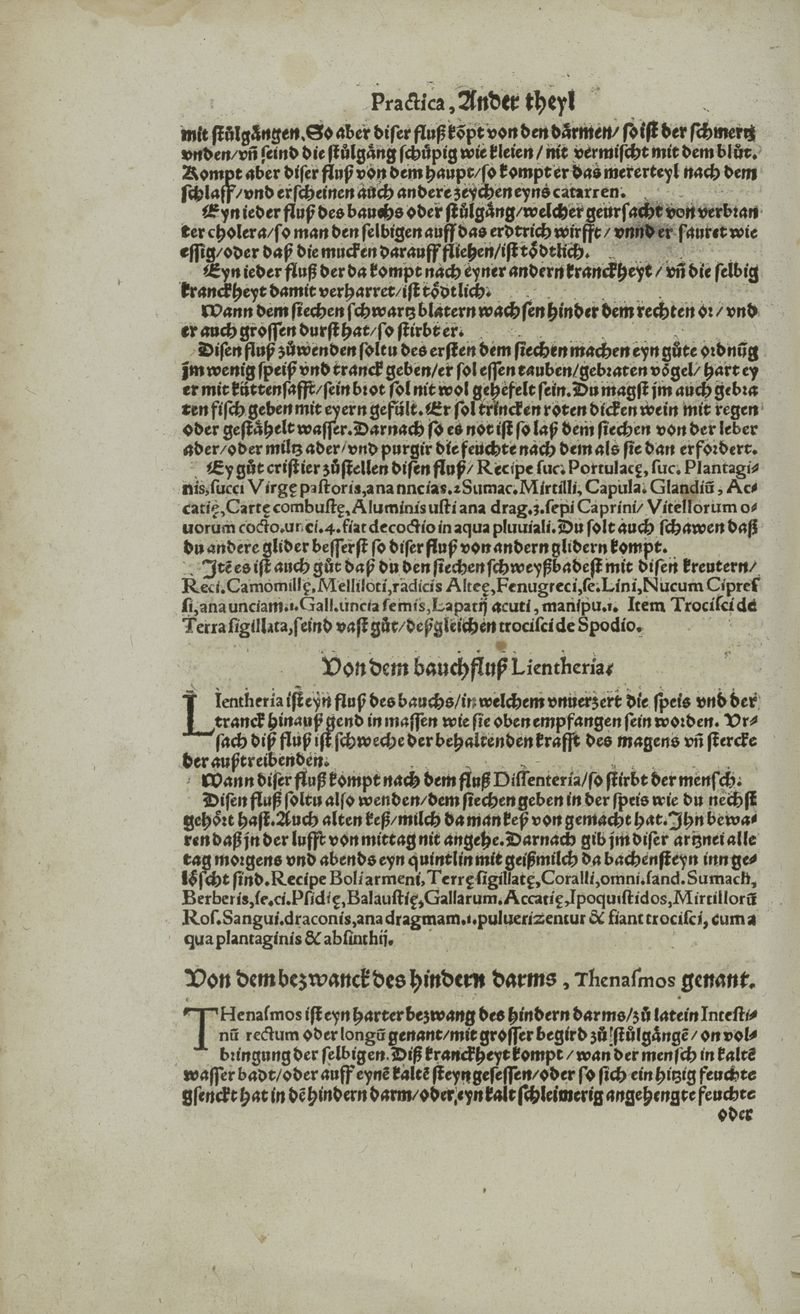 Practica, Ander theyl
mit stůlgängen. So aber diser fluß köpt von den därmen/ so ist der schmertz
vnden/ vñ seind die stůlgäng schůpig wie kleien/ nit vermischt mit dem blůt.
Kompt aber diser fluß von dem haupt/ so kompt er das mererteyl nach dem
schlaff/ vnd erscheinen auch andere zeychen eyns catarren.
Eyn ieder fluß des bauchs oder stůlgäng/ welcher geursacht von verbran
ter cholera/ so man den selbigen auff das erdtrich wirfft/ vnnd er sauret wie
essig/ oder daß die mucken darauff fliehen/ ist tödtlich.
Eyn ieder fluß der da kompt nach eyner andern kranckheyt/ vñ die selbig
kranckheyt damit verharret/ ist tödtlich.
Wann dem siechen schwartz blatern wachsen hinder dem rechten or/ vnd
er auch grossen durst hat/ so stirbt er.
Disen fluß zůwenden soltu des ersten dem siechen machen eyn gůte ordnũg
jm wenig speiß vnd tranck geben/ er sol essen tauben/ gebraten vögel/ hart ey
er mit küttensafft/ sein brot sol nit wol gehefelt sein. Du magst jm auch gebra
ten fisch geben mit eyern gefült. Er sol trincken roten dicken wein mit regen
oder gestähelt wasser. Darnach so es not ist so laß dem siechen von der leber
ader/ oder miltz ader/ vnd purgir die feuchte nach dem als sie dan erfordert.
Ey gůt cristier zůstellen disen fluß/ Recipe suc. Portulacę, suc. Plantagi⸗
nis, succi Virgę pastoris, ana nncias. 2 Sumac. Mirtilli, Capula. Glandiũ, Ac⸗
catię, Cartę combustę, Aluminis usti ana drag. 3. sepi Caprini/ Vitellorum o⸗
uorum cocto. unci. 4. fiat decoctio in aqua pluuiali. Du solt auch schawen daß
du andere glider besserst so diser fluß von andern glidern kompt.
Jtẽ es ist auch gůt daß du den siechen schweyßbadest mit disen kreutern/
Reci. Camomillę, Melliloti, radicis Alteę, Fenugreci, se. Lini, Nucum Cipres
si, ana unciam. 1. Gall. uncia semis, Lapatij acuti, manipu. 1. Item Trocisci de
Terra sigillata, seind vast gůt/ deßgleichen trocisci de Spodio.
Von dem bauchfluß Lientheria.
LIentheria ist eyn fluß des bauchs/ in welchem vnuerzert die speis vnd der
tranck hinauß gend in massen wie sie oben empfangen sein worden. Vr⸗
sach diß fluß ist schweche der behaltenden krafft des magens vñ stercke
der außtreibenden.
Wann diser fluß kompt nach dem fluß Dissenteria/ so stirbt der mensch.
Disen fluß soltu also wenden/ dem siechen geben in der speis wie du nechst
gehört hast. Auch alten keß/ milch da man keß von gemacht hat. Jhn bewa⸗
ren daß jn der lufft von mittag nit angehe. Darnach gib jm diser artznei alle
tag morgens vnd abends eyn quintlin mit geißmilch da bachensteyn inn ge⸗
löscht sind. Recipe Boli armeni, Terrę sigillatę, Coralli, omni. sand. Sumach,
Berberis, se. ci. Psidię, Balaustię, Gallarum. Accatię, Ipoquistidos, Mirtillorũ
Ros. Sangui. draconis, ana dragmam. 1. puluerizentur & fiant trocisci, cum a
qua plantaginis & absinthij.
Von dem bezwanck des hindern darms, Thenasmos genant.
THenasmos ist eyn harter bezwang des hindern darms/ zů latein Intesti⸗
nũ rectum oder longũ genant/ mit grosser begird zů stůlgängẽ/ on vol⸗
bringung der selbigen. Diß kranckheyt kompt/ wan der mensch in kaltẽ
wasser badt/ oder auff eynẽ kaltẽ steyn gesessen/ oder so sich ein hitzig feuchte
gsenckt hat in dẽ hindern darm/ oder, eyn kalt schleimerig angehengte feuchte
oder